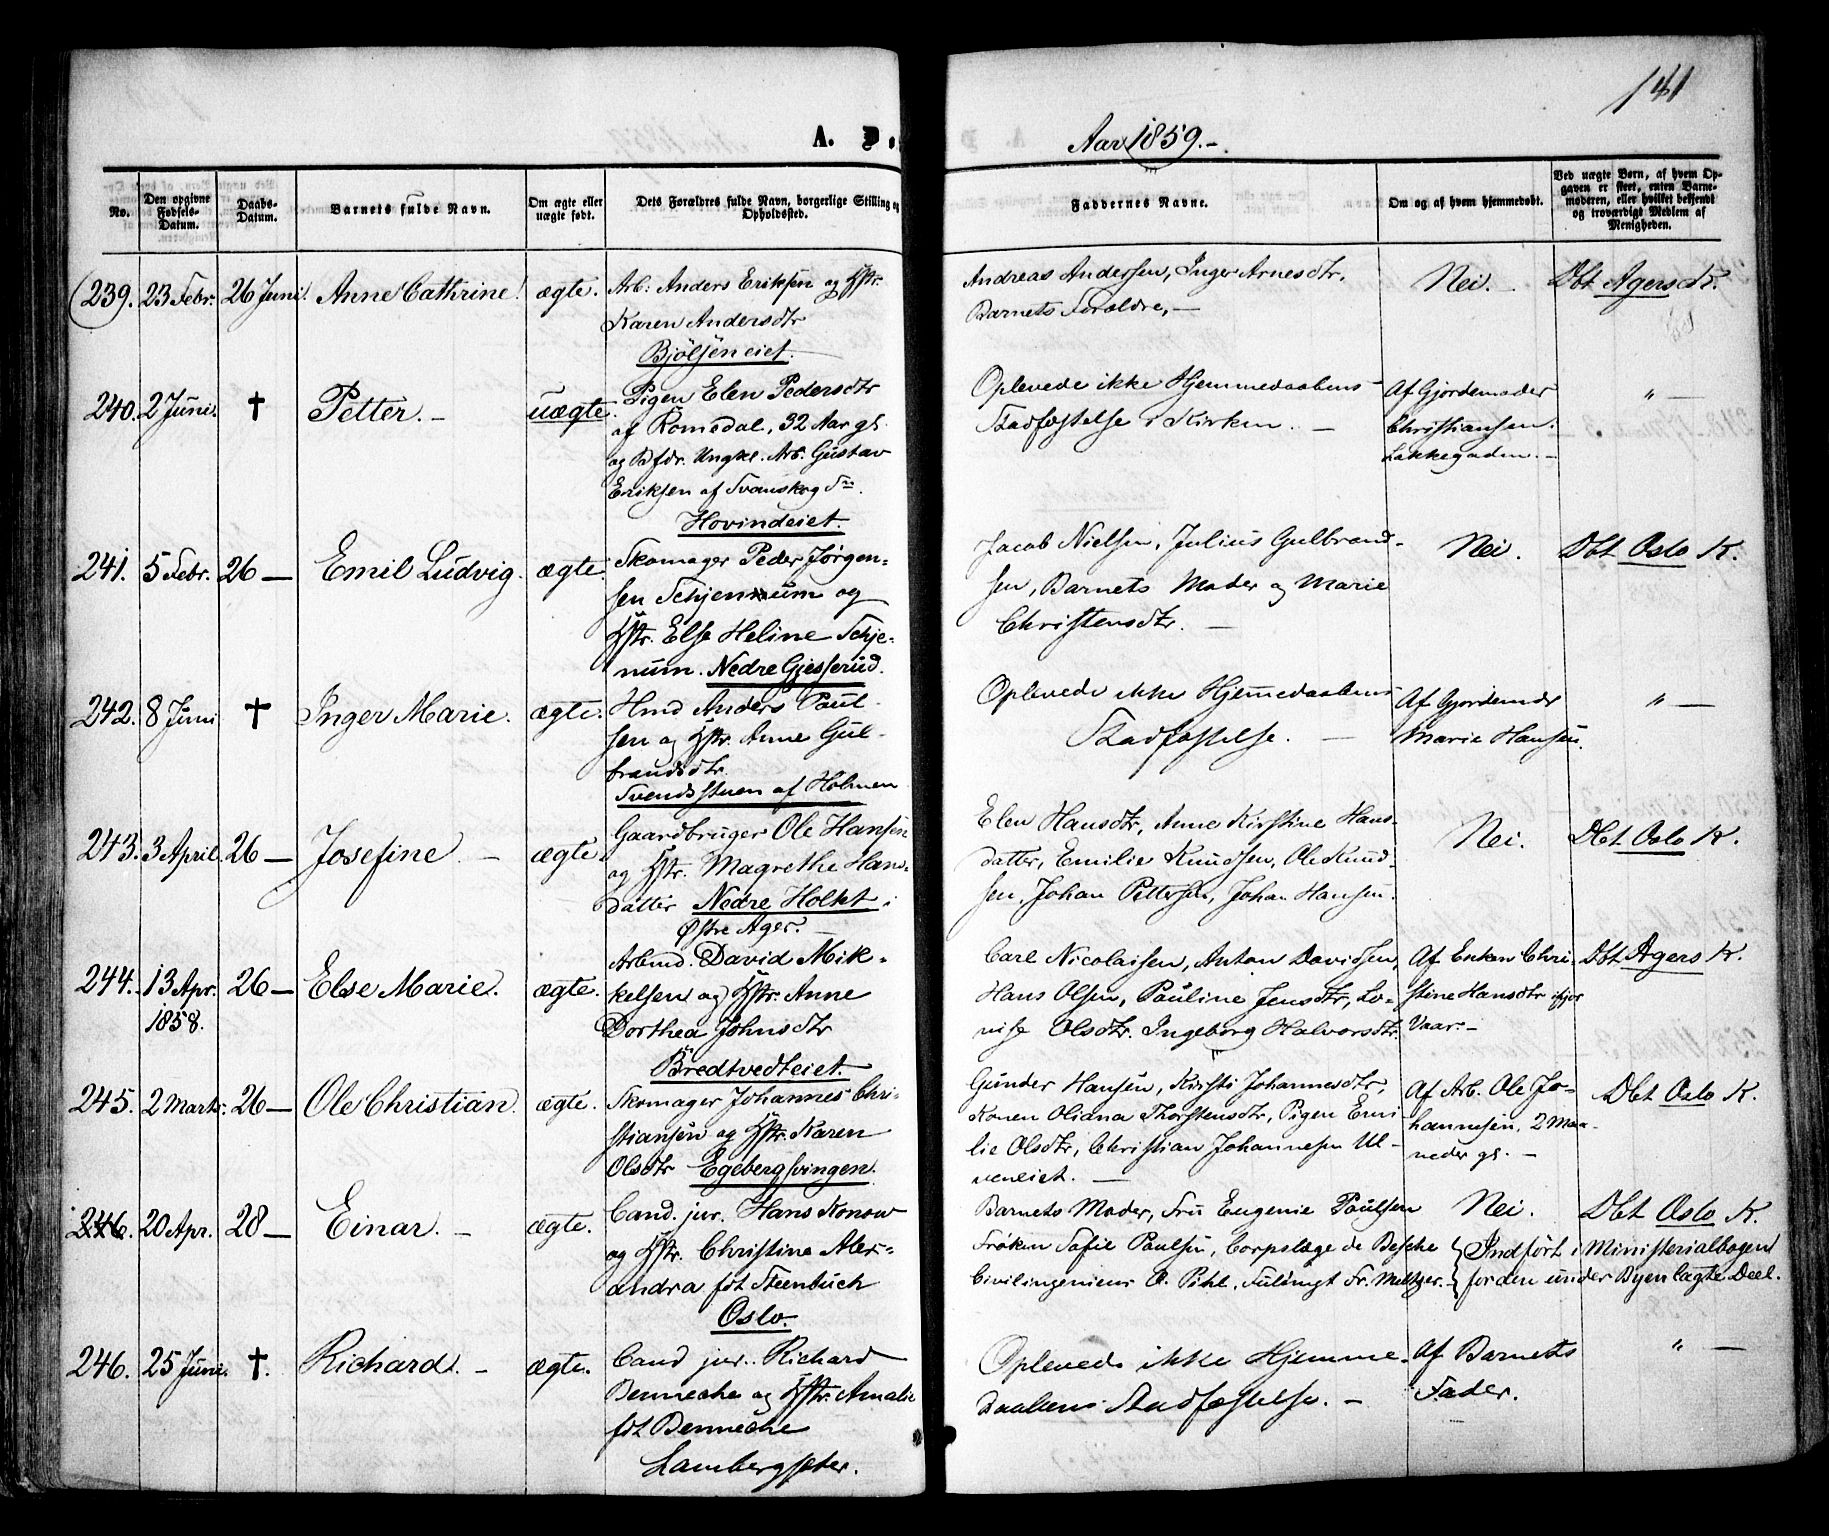 141
A. D.
Aar 1859.-
No.
Den opgivne Fødsels-Datum.
Daabs-Datum.
Barnets fulde Navn.
Om ægte eller uægte født.
Dets Forældres fulde Navn, borgerlige Stilling og Opholdssted.
Faddernes Navne.
Om og af hvem hjemmedøbt.
Ved uægte Børn, af hvem Opgaven er skeet, enten Barnemoderen, eller hvilket bekjendt og troværdigt Medlem af Menigheden.
239. 23 Febr. 26 Juni. Anne Cathrine. ægte.
Arb: Anders Eriksen og Hstr.
Karen Andersdtr
Bjölseneiet.
Andreas Andersen, Inger Arnesdtr,
Barnets Foraldre, —
Nei. Dbt Agers K.
240. 2 Juni. † Petter. — uægte.
Pigen Elen Pedersdtr
af Romedal, 32 Aar gl.
og Bfdr. Ungkl. Arb. Gustav
Eriksen af Svanskog Sn.
Hovindeiet.
Oplevede ikke Hjemmedaabens
Stadfæstelse i Kirken. —
Af Gjordemoder
Christiansen.
Lakkegaden. —
" —
241. 5 Febr. 26 — Emil Ludvig. ægte.
Skomager Peder Jørgen-
sen Schjennum og
Hstr. Else Heline Schje-
num. Nedre Gjesserud.
Jacob Nielsen, Julius Gulbrand-
sen, Barnets Moder og Marie
Christensdtr. —
Nei. Dbt Oslo K.
242. 8 Juni † Inger Marie. ægte.
Hmd Anders Paul-
sen og Hstr. Anne Gul-
brandsdtr.
Svendsstuen af Holmen
Oplevede ikke Hjemmedaabens
Stadfæstelse. —
Af Gjordemdr
Marie Hansen.
" —
243. 3 April. 26 — Josefine. — ægte
Gaardbruger Ole Hansen
og Hstr. Magrethe Hans-
datter Nedre Holtet i
Østre Ager. —
Elen Hansdtr, Anne Kirstine Hans-
datter, Emilie Knudsen, Ole Knud-
sen, Johan Pettersen, Johan Hansen.
Nei. Dbt Oslo K.
244. 13 Apr. 26 — Else Marie. ægte.
1858.
Arbmd. David Mik-
kelsen og Hstr. Anne
Dorthea Johnsdtr
Bredtvedteiet.
Carl Nicolaisen, Anton Davidsen,
Hans Olsen, Pauline Jensdtr, Lo-
vise Olsdtr. Ingeborg Halvorsdtr.
Af Enken Chri-
stine Hansdtr ifjor
Vaar. —
Dbt Agers K.
245. 2 Marts. 26 — Ole Christian. ægte.
Skomager Johannes Chri-
stiansen og Hstr. Karen
Olsdtr Egebergsvingen.
Gunder Hansen, Kirsti Johannesdtr,
Konen Oliana Thorstensdtr, Pigen Emi-
lie Olsdtr, Christian Johannesen Ul-
veneiet. —
Af Arb. Ole Jo-
hannesen, 2 Maa-
neder gl. —
Dbt Oslo K.
246. 20 Apr. 28 — Einar. — ægte.
Cand. jur. Hans Konow
og Hstr. Christine Alex-
andra fdt Steenbuch
Oslo.
Barnets Moder, Fru Eugenie Paulsen
Frøken Sofie Paulsen, Corpslæge de Besche
Civilingenieur C. Pihl, Fuldmgt Fr. Meltzer.
Nei. Dbt Oslo K.
Indført i Ministerialbogen
for den under Byen lagte Deel.
246. 25 Juni. †. Richard. — ægte.
Cand jur. Richard
Benneche og Hstr. Amalie
fdt Benneche
Lambergseter.
Oplevede ikke Hjemme-
daabens Stadfæstelse. —
Af Barnets
Fader.
" —